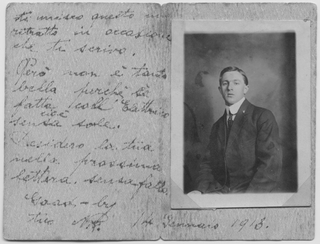 Ti mando questo mio
ritratto in occasione
che ti scrivo.
Però non è tanto
bella perchè è
fatta coll' Elettrico
cioè
senza sole.
Desidero la tua
nella prossima
lettera. senza fallo
1 Gennaio 1913.